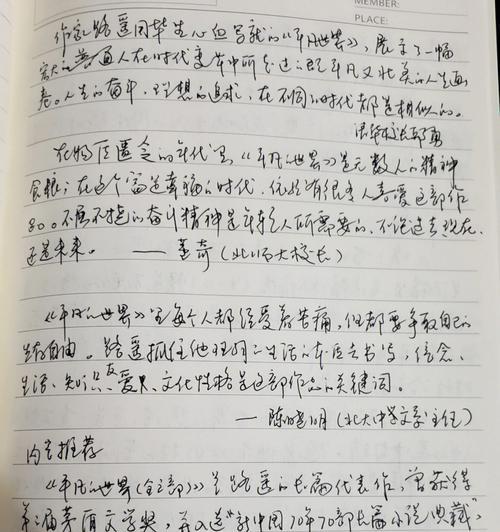 MEMBER:
PLACE:
作家路遥用毕生心血写就的《平凡世界》，展示了一幅
宏大的普通人在时代变革中所走过的既平凡又壮美的人生画
卷。人生的奋斗，理想的追求，在不同的时代都是相似的。
清华校长邱勇
在物质匮乏的年代里《平凡的世界》是无数人的精神
食粮；在这个富足幸福的时代，依然有很多人喜爱这部作
品。不屈不挠的奋斗精神是年轻人所需要的，不论过去现在
还是未来。——董奇（北师大校长）
《平凡的世界》里每个人都经受着苦痛，但都要争取自己的
生存自由。路遥抓住他理解的生活的本质去书写，信念、
生活、知识、爱、文化性格是这部作品的关键词。
—陈晓明（北大中文系主任）
内容推荐
《平凡的世界（全三部）》是路遥的长篇代表作，曾获得
第三届茅盾文学奖，并入选“新中国70年70部长篇小说典藏”